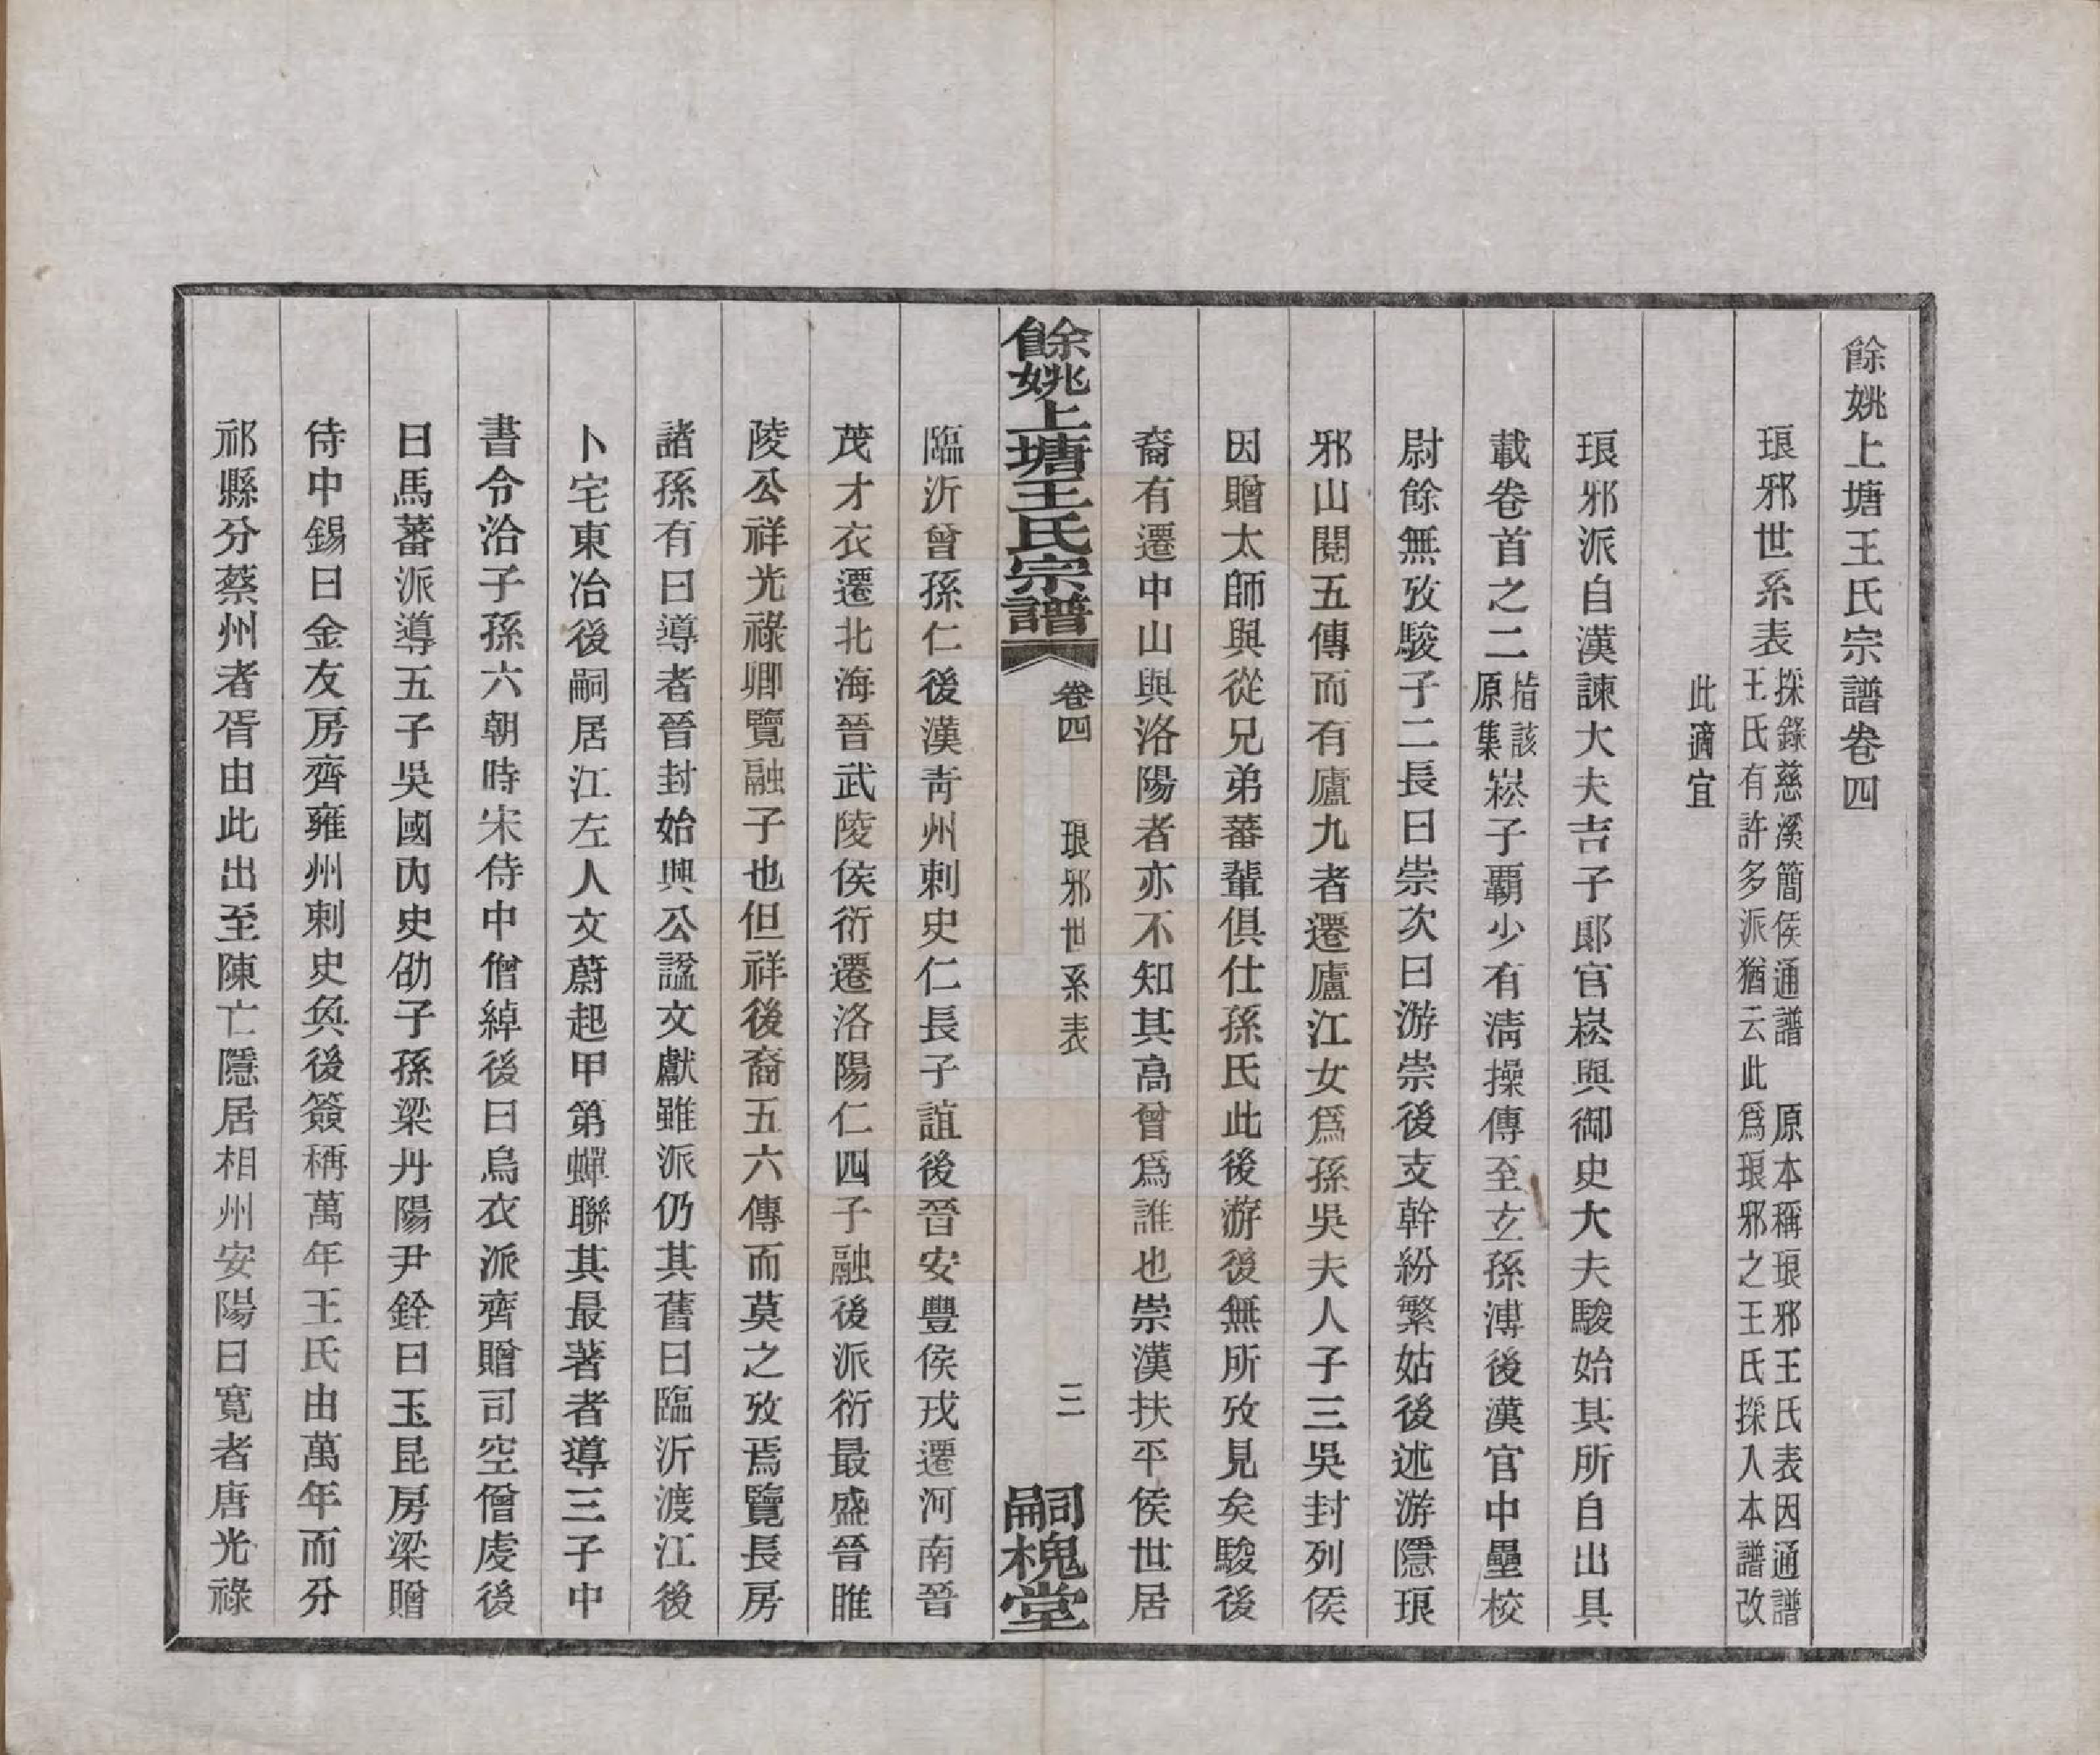 餘姚上塘王氏宗譜卷四
琅邪世系表 採錄慈溪簡侯通譜 原本稱琅邪王氏表因通譜
王氏有許多派猶云此爲琅邪之王氏採入本譜改
此適宜
琅邪派自漢諫大夫吉子郎官崧與御史大夫駿始其所自出具
載卷首之二 指該原集 崧子覇少有淸操傳至玄孫溥後漢官中壘校
尉餘無攷駿子二長曰崇次曰游崇後支幹紛繁姑後述游隱琅
邪山閱五傳而有廬九者遷廬江女爲孫吳夫人子三吳封列侯
因贈太師與從兄弟蕃輩俱仕孫氏此後游後無所攷見矣駿後
裔有遷中山與洛陽者亦不知其高曾爲誰也崇漢扶平侯世居
餘姚上塘王氏宗譜 卷四 琅邪世系表 三 嗣槐堂
臨沂曾孫仁後漢靑州刺史仁長子誼後晉安豐侯戎遷河南晉
茂才衣遷北海晉武陵侯衍遷洛陽仁四子融後派衍最盛晉睢
陵公祥光祿卿覽融子也但祥後裔五六傳而莫之攷焉覽長房
諸孫有曰導者晉封始興公諡文獻雖派仍其舊曰臨沂渡江後
卜宅東冶後嗣居江左人文蔚起甲第蟬聯其最著者導三子中
書令洽子孫六朝時宋侍中僧綽後曰烏衣派齊贈司空僧虔後
曰馬蕃派導五子吳國內史劭子孫梁丹陽尹銓曰玉昆房梁贈
侍中錫曰金友房齊雍州刺史奐後簽稱萬年王氏由萬年而分
祁縣分蔡州者胥由此出至陳亡隱居相州安陽曰寬者唐光祿